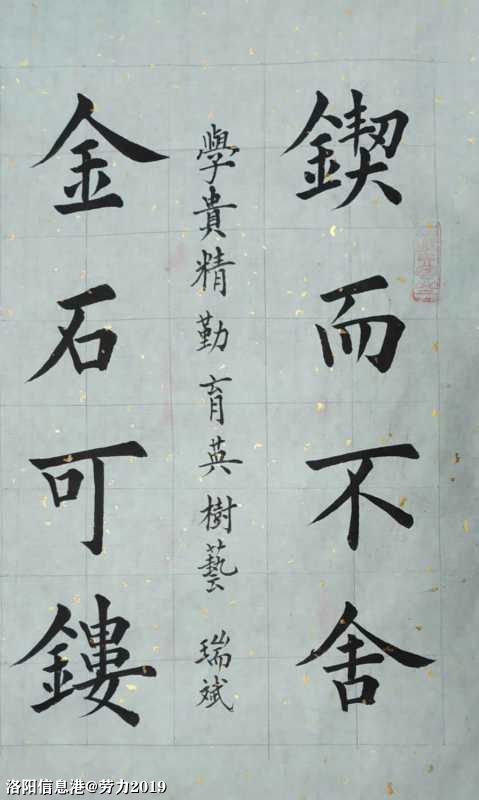 鍥而不舍
金石可鏤
學貴精勤育英樹藝 瑞斌
洛阳信息港@劳力2019